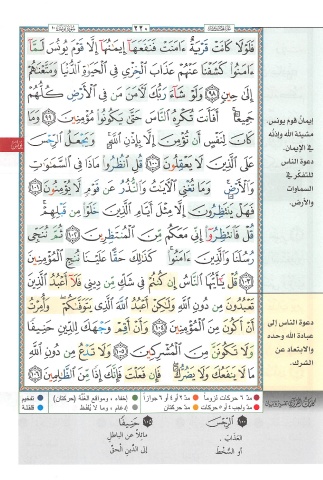 ٢٢٠
فَلَوْلَا كَانَتْ قَرْيَةٌ ءَامَنَتْ فَنَفَعَهَا إِيمَٰنُهَا إِلَّا قَوْمَ يُونُسَ لَمَّا
ءَامَنُوا۟ كَشَفْنَا عَنْهُمْ عَذَابَ ٱلْخِزْىِ فِى ٱلْحَيَوٰةِ ٱلدُّنْيَا وَمَتَّعْنَٰهُمْ
إِلَىٰ حِينٍ ٩٨ وَلَوْ شَآءَ رَبُّكَ لَءَامَنَ مَن فِى ٱلْأَرْضِ كُلُّهُمْ
جَمِيعًا ۚ أَفَأَنتَ تُكْرِهُ ٱلنَّاسَ حَتَّىٰ يَكُونُوا۟ مُؤْمِنِينَ ٩٩ وَمَا
كَانَ لِنَفْسٍ أَن تُؤْمِنَ إِلَّا بِإِذْنِ ٱللَّهِ ۚ وَيَجْعَلُ ٱلرِّجْسَ
عَلَى ٱلَّذِينَ لَا يَعْقِلُونَ ١٠٠ قُلِ ٱنظُرُوا۟ مَاذَا فِى ٱلسَّمَٰوَٰتِ
وَٱلْأَرْضِ ۚ وَمَا تُغْنِى ٱلْءَايَٰتُ وَٱلنُّذُرُ عَن قَوْمٍ لَّا يُؤْمِنُونَ ١٠١
فَهَلْ يَنتَظِرُونَ إِلَّا مِثْلَ أَيَّامِ ٱلَّذِينَ خَلَوْا۟ مِن قَبْلِهِمْ ۚ
قُلْ فَٱنتَظِرُوٓا۟ إِنِّى مَعَكُم مِّنَ ٱلْمُنتَظِرِينَ ١٠٢ ثُمَّ نُنَجِّى
رُسُلَنَا وَٱلَّذِينَ ءَامَنُوا۟ ۚ كَذَٰلِكَ حَقًّا عَلَيْنَا نُنجِ ٱلْمُؤْمِنِينَ
١٠٣ قُلْ يَٰٓأَيُّهَا ٱلنَّاسُ إِن كُنتُمْ فِى شَكٍّ مِّن دِينِى فَلَآ أَعْبُدُ ٱلَّذِينَ
تَعْبُدُونَ مِن دُونِ ٱللَّهِ وَلَٰكِنْ أَعْبُدُ ٱللَّهَ ٱلَّذِى يَتَوَفَّىٰكُمْ ۖ وَأُمِرْتُ
أَنْ أَكُونَ مِنَ ٱلْمُؤْمِنِينَ ١٠٤ وَأَنْ أَقِمْ وَجْهَكَ لِلدِّينِ حَنِيفًا
وَلَا تَكُونَنَّ مِنَ ٱلْمُشْرِكِينَ ١٠٥ وَلَا تَدْعُ مِن دُونِ ٱللَّهِ
مَا لَا يَنفَعُكَ وَلَا يَضُرُّكَ ۖ فَإِن فَعَلْتَ فَإِنَّكَ إِذًا مِّنَ ٱلظَّٰلِمِينَ ١٠٦
إيمان قوم يونس.
مشيئة الله وإذنه
في الإيمان.
دعوة الناس
للتفكر في
السماوات
والأرض.
دعوة الناس إلى
عبادة الله وحده
والابتعاد عن
الشرك.
يونس
مدّ ٦ حركات لزوماً مدّ ٢ أو ٤ أو ٦ جوازاً إخفاء، ومواقع الغنّة (حركتان) تفخيم
مدّ واجب ٤ أو ٥ حركات مدّ حركتان إدغام، وما لا يُلفظ قلقلة
ٱلرِّجْسَ
العذابَ.
أو السُّخطَ
حَنِيفًا
مائلاً عن الباطل
إلى الدّين الحقّ